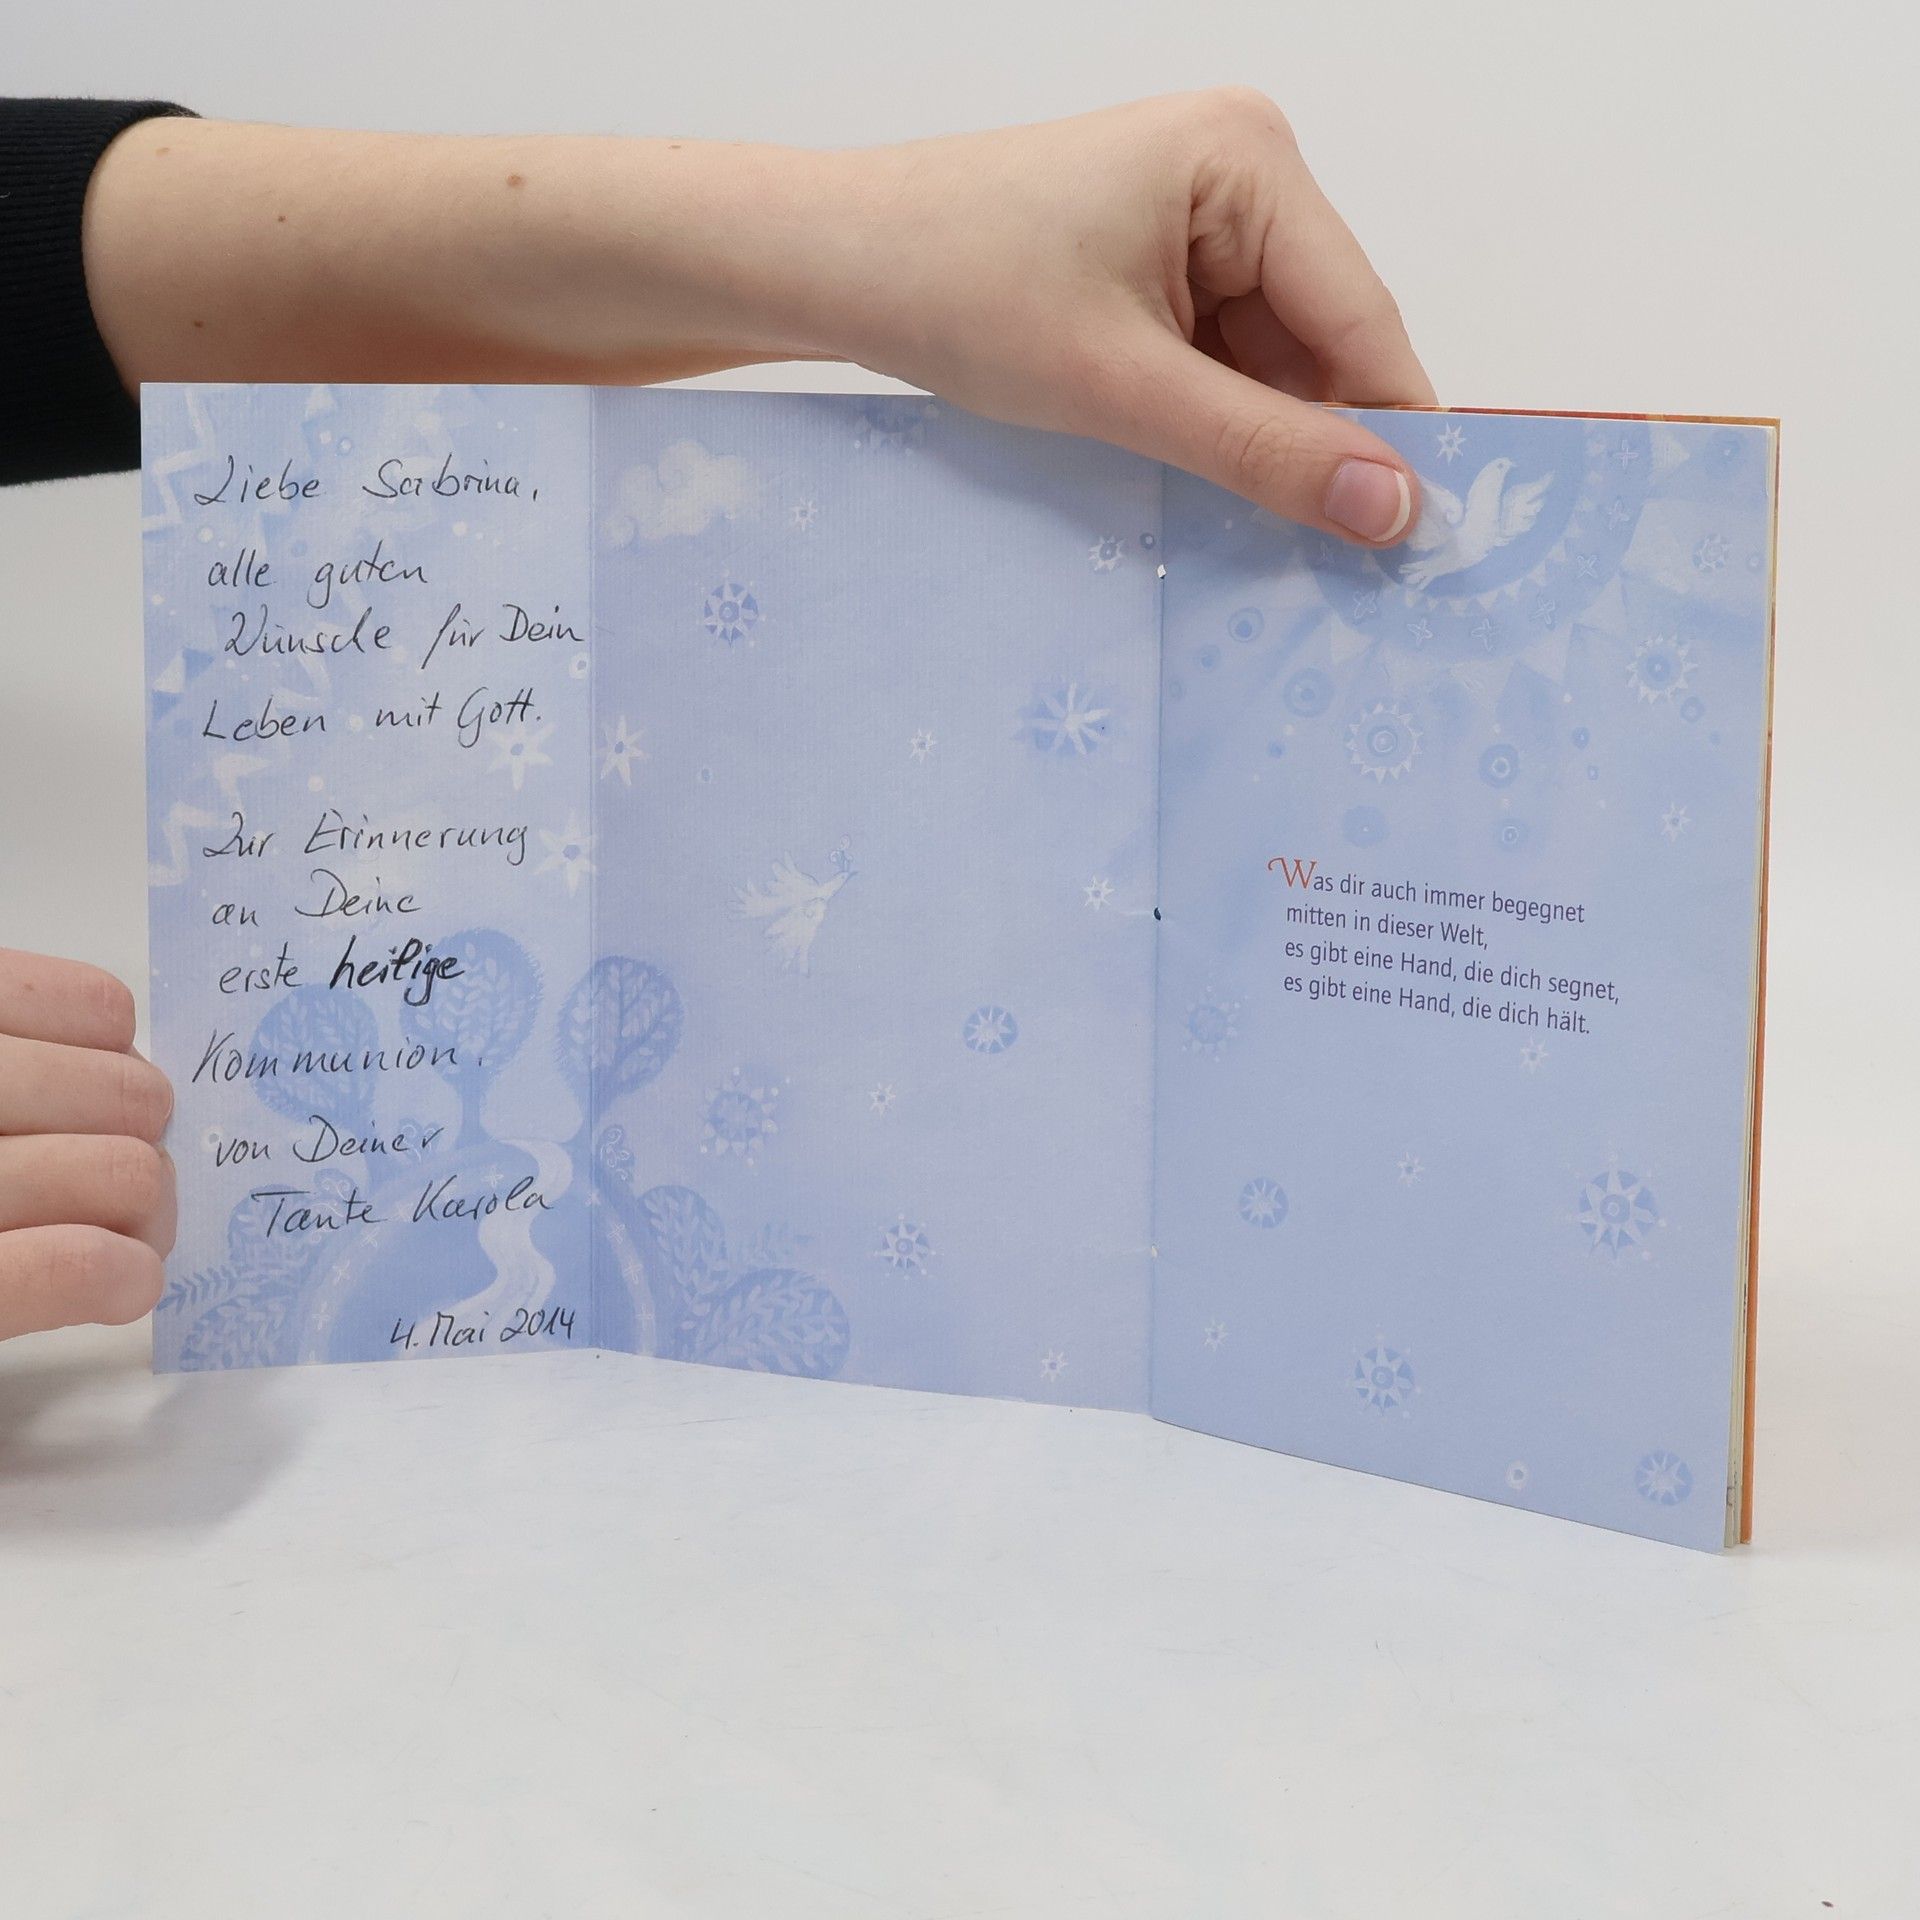 Liebe Sabrina,
alle guten
Wünsche für Dein
Leben mit Gott.
Zur Erinnerung
an Deine
erste heilige
Kommunion.
von Deiner
Tante Karola
4. Mai 2014
Was dir auch immer begegnet
mitten in dieser Welt,
es gibt eine Hand, die dich segnet,
es gibt eine Hand, die dich hält.